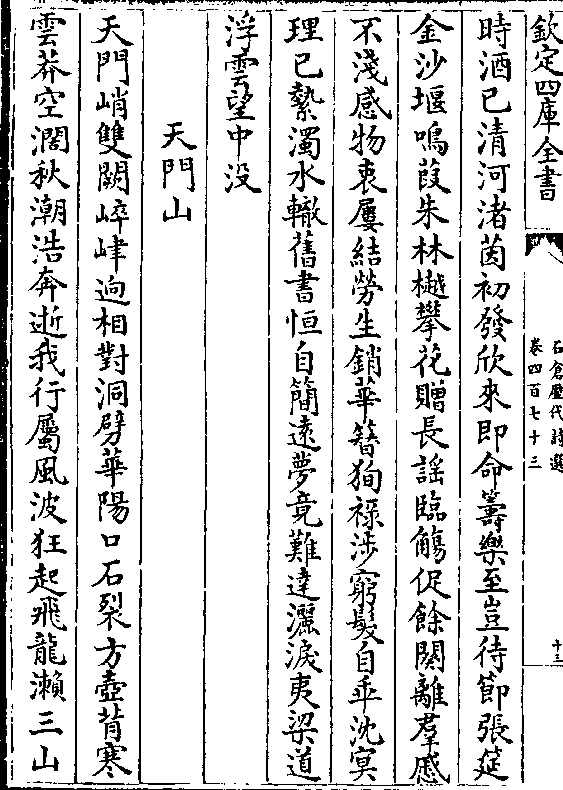 欽定四庫全書
石倉歷代詩選
卷四百七十三
十三
時酒已清河渚茵初發欣來即命籌樂至豈待節張筵
金沙堰鳴葭朱林樾攀花贈長謡臨觴促餘闋離羣慼
不淺感物衷屢結勞生銷華簪狥祿涉窮髮自乖沈冥
理已縶濁水轍舊書恒自簡遠夢竟難達灑淚夷梁道
浮雲望中没
天門山
天門峭雙闕崪嵂逈相對洞劈華陽口石裂方壺背寒
雲莽空濶秋潮浩奔逝我行屬風波狂起飛龍瀨三山